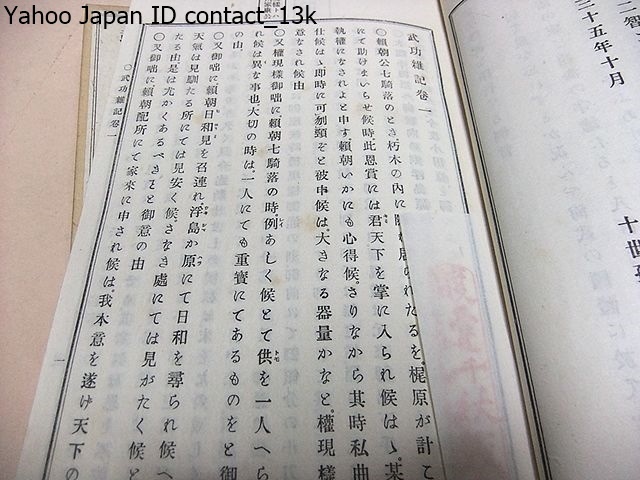 Yahoo Japan ID contact_13k
三十五年十月
十世孫
武功雜記卷一
〇賴朝公七騎落のとき朽木の內に られたるを。梶原が計こ
にて助けまいらせ候時此恩賞には君天下を掌に入られ候はゝ。某
執權になされよと申す賴朝いかにも心得候。さりなから其時私曲
仕候はゝ卽時に可刎頸ぞと被申候は。大きなる器量かなと。權現樣
意なされ候由
〇又權現樣御咄に賴朝七騎落の時。例あしく候とて供を一人へら
れ候は異な事也大切の時は。一人にても重寳にてあるものをと御
の由
〇又御咄に賴朝日和見を召連れ浮島か原にて日和を尋られ候へ
天氣は見馴たる所にては見安く候さなき處にては見がたく候と
たる由是は尤かくあるべきことと御意の由
〇又御咄に賴朝配所にて家來に申され候は。我本意を遂け天下の
〇武功雜記卷一
一